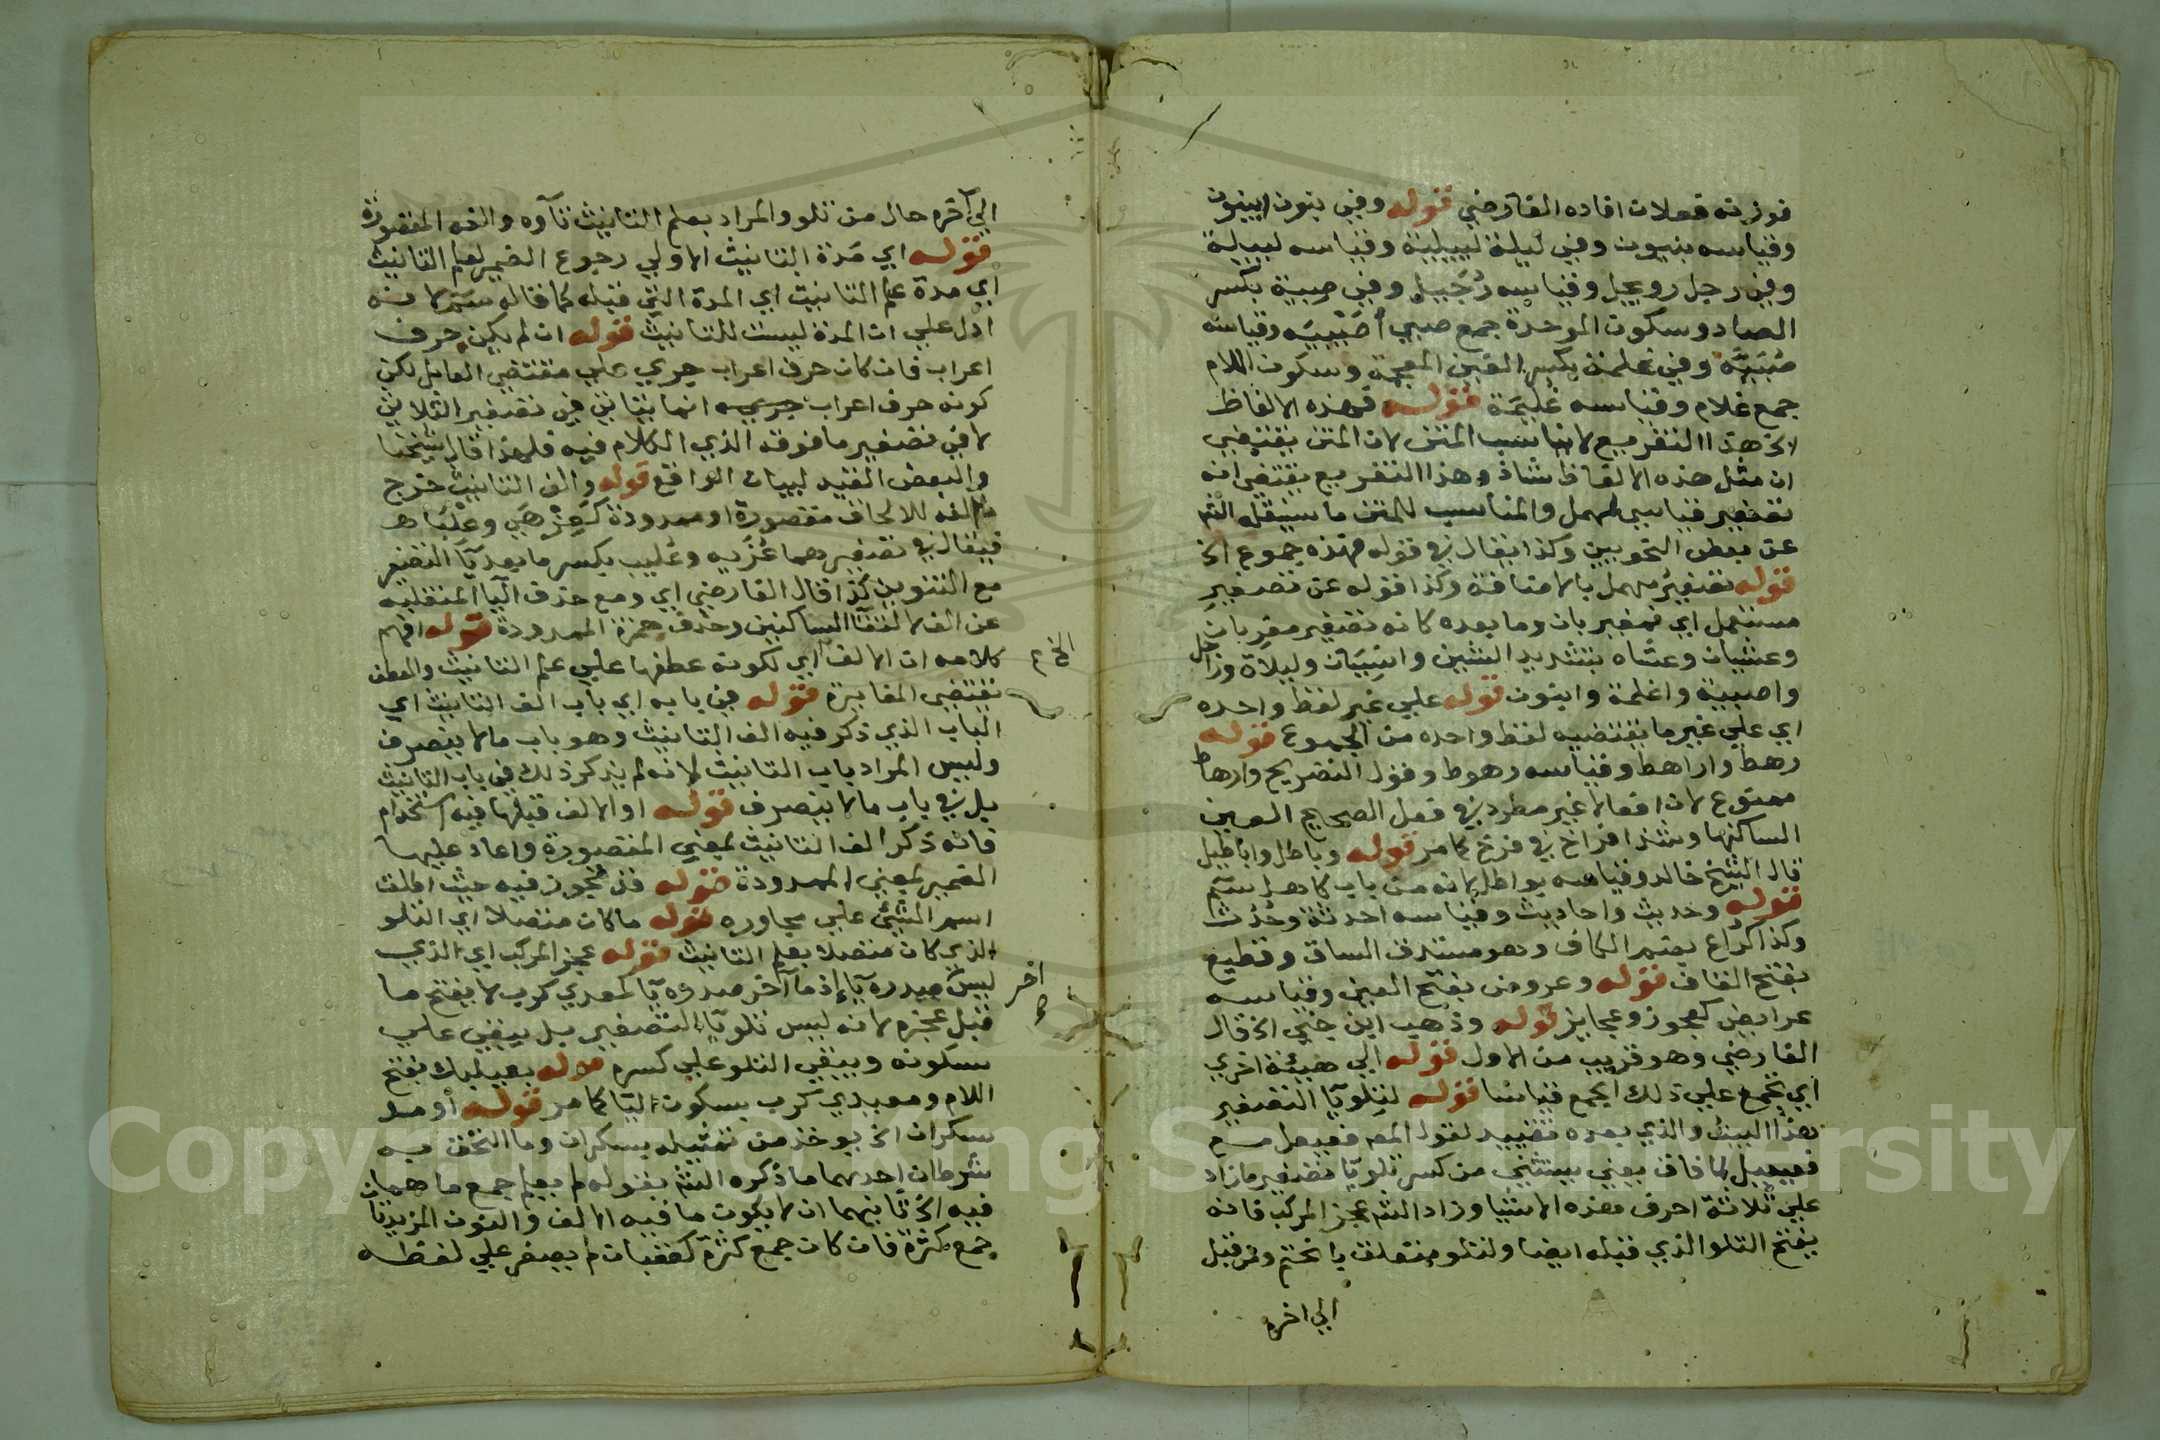 فوزنه فعلان افاده الفارضي قوله وفي بنون ابينون
وقياسه بنيون وفي ليلة لييلية وقياسه لييلة
وفي رجل رويجل وقياسه رُجَيل وفي صِبية بكسر
الصاد وسكون الموحدة جمع صبي أُصَيْبِيَه وقياسه
صُبَيَّه وفي غلمة بكسر الغين المعجمة وسكون اللام
جمع غلام وقياسه غُليمَة قوله فهذه الالفاظ
الخ هذا التفريع لا يناسب المتن لان المتن يقتضي
ان مثل هذه الالفاظ شاذ وهذا التفريع يقتضي انه
تصغير قياسي لمهمل والمناسب للمتن ما سينقله الشم
عن بعض النحويين وكذا يقال في قوله فهذه جموع الخ
قوله تصغير مهمل بالاضافة وكذا قوله عن تصغير
مستعمل اي فمغيربان وما بعده كانه تصغير مغربان
وعشيان وعشاه بتشديد الشين وانسيان وليلاة وراجل
واصبية واغلمة وابنون قوله علي غير لفظ واحده
اي علي غير ما يقتضيه لفظ واحده من الجموع قوله
رهط واراهط وقياسه رهوط وقول التصريح وارهاط
ممنوع لان افعالا غير مطرد في فعل الصحيح العين
الساكنها وشذ افراخ في فرخ كما مر قوله وباطل واباطيل
قال الشيخ خالد وقياسه بواطل لانه من باب كاهل سم
قوله وحديث واحاديث وقياسه احدثة وحُدُث
وكذا كراع بضم الكاف وهو مستدق الساق وقطيع
بفتح القاف قوله وعروض بفتح العين وقياسه
عرايض كعجوز وعجايز قوله وذهب ابن جني الخ قال
الفارضي وهو قريب من الاول قوله الي هيئة اخري
اي يجمع علي ذلك الجمع قياسا قوله لتلو يا التصغير
هذا البيت والذي بعده تقييد لقول المص فعيعل مع
فعيعيل لما فاق يعني يستثني من كسر تلو يا تصغير ما زاد
علي ثلاثة احرف هذه الاشيا وزاد الشم عجز المركب فانه
يفتح التلو الذي قبله ايضا ولتلو متعلق بانحتم ومن قبل
الي اخره
الي آخره حال من تلو والمراد بعلم التانيث تاؤه والفه المقصورة
قوله اي مَدة التانيث الاولي رجوع الضمير لعلم التانيث
اي مدة علم التانيث اي المدة التي قبله كما قاله سم لانه
ادل علي ان المدة ليست للتانيث قوله ان لم يكن حرف
اعراب فان كان حرف اعراب جري علي مقتضي العامل لكن
كونه حرف اعراب انما يتاتي في تصغير الثلاثي
لا في تصغير ما فوقه الذي الكلام فيه فلهذا قال شيخنا
والبعض القيد لبيان الواقع قوله والف التانيث خرج
ما الفه للالحاق مقصورة او ممدودة كَعِزْهَي وعِلْبَاء
فيقال في تصغيرهما عُزَيه وعُليب بكسر ما بعد يا التصغير
مع التنوين كذا قال الفارضي اي ومع حذف اليا المنقلبه
عن الف لالتقا الساكنين وحذف همزة الممدودة قوله افهم
كلامه ان الالف الخ اي لكونه عطفها علي علم التانيث والعطف
يقتضي المغايرة قوله في بابه اي باب الف التانيث اي
الباب الذي ذكر فيه الف التانيث وهو باب ما لا ينصرف
وليس المراد باب التانيث لانه لم يذكر ذلك في باب التانيث
بل في باب ما لا ينصرف قوله او الالف قبلها فيه استخدام
فانه ذكر الف التانيث بمعني المقصورة واعاد عليها
الضمير بمعني الممدودة قوله فتجوز فيه حيث اطلق
اسم الشيء علي مجاوره قوله ما كان منفصلا اي التلو
الذي كان منفصلا بعلم التانيث قوله عجز المركب اي الذي
ليس صدره يا اذ ما آخر صدره يا كمعدي كرب لا يفتح ما
قبل عجزه لانه ليس تلو يا التصغير بل يبقي علي
سكونه ويبقي التلو علي كسره قوله بعيلبك بفتح
اللام ومعيدي كرب بسكون اليا كما مر قوله أو مد
سكران الخ يوخذ من تمثيله بسكران وما التحق به
شرطان احدهما ما ذكره الشم بقوله لم يعلم جمع ما هما
فيه الخ ثانيهما ان لا يكون ما فيه الالف والنون المزيدتان
جمع كثرة فان كان جمع كثرة كعقبان لم يصغر علي لفظه
الخ
اخر
Copyright © King Saud University